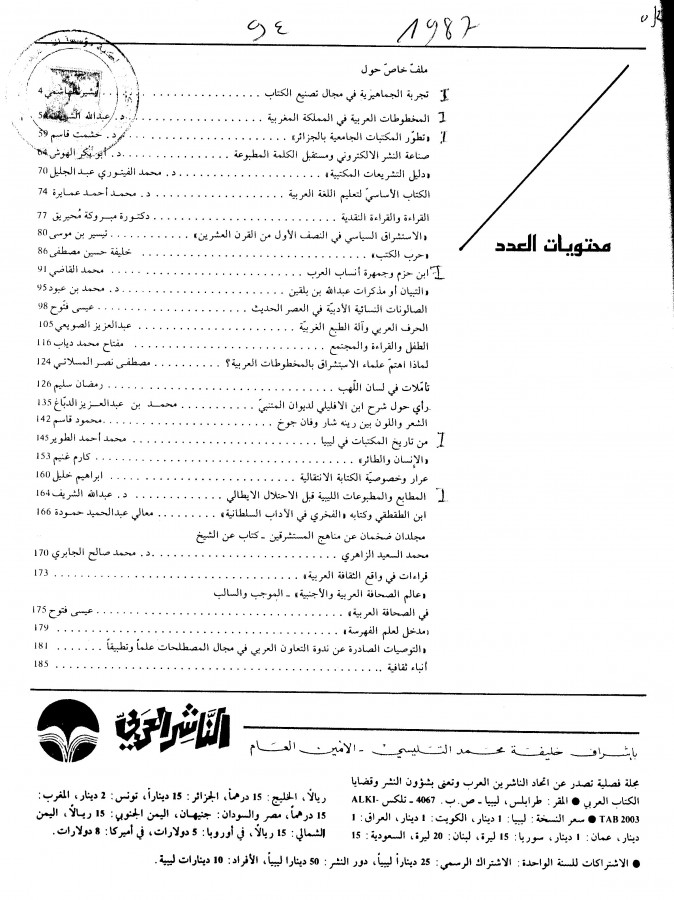 1987 ع9
ملفّ خاصّ حول
تجربة الجماهيرية في مجال تصنيع الكتاب . . . . . . . . . . . . الهاشمي 4
المخطوطات العربية في المملكة المغربية . . . . . . . . . . . . د. عبدالله الشريف
«تطوّر المكتبات الجامعية بالجزائر» . . . . . . . . . . . . د. حشمت قاسم 59
صناعة النشر الالكتروني ومستقبل الكلمة المطبوعة . . . . . . . . د. أبو بكر الهوش 64
«دليل التشريعات المكتبية» . . . . . . . . . . د. محمد الفيتوري عبد الجليل 70
الكتاب الأساسيّ لتعليم اللغة العربية . . . . . . . . . . د. محمد أحمد عمايرة 74
القراءة والقراءة النقدية . . . . . . . . . . . . دكتورة مبروكة مُحيريق 77
«الاستشراق السياسي في النصف الأول من القرن العشرين» . . . . تيسير بن موسى 80
«حرب الكتب» . . . . . . . . . . . . خليفة حسين مصطفى 86
ابن حزم وجمهرة أنساب العرب . . . . . . . . . . . . محمد القاضي 91
«التبيان أو مذكرات عبدالله بن بلقين . . . . . . . . . . د. محمد بن عبود 95
الصالونات النسائية الأدبيّة في العصر الحديث . . . . . . . . . . عيسى فتّوح 98
الحرف العربي وآلة الطبع الغربيّة . . . . . . . . . . عبدالعزيز الصويعي 105
الطفل والقراءة والمجتمع . . . . . . . . . . . . مفتاح محمد دياب 116
لماذا اهتمّ علماء الاستشراق بالمخطوطات العربية؟ . . . . . . . مصطفى نصر المسلاتي 124
تأمّلات في لسان اللّهب . . . . . . . . . . . . رمضان سليم 126
رأي حول شرح ابن الافليلي لديوان المتنبيّ . . . . . . محمد بن عبدالعزيز الدبّاغ 135
الشعر واللون بين رينه شار وفان جوخ . . . . . . . . . . محمود قاسم 142
من تاريخ المكتبات في ليبيا . . . . . . . . . . محمد أحمد الطوير 145
«الإنسان والطائر» . . . . . . . . . . . . كارم غنيم 153
عرار وخصوصيّة الكتابة الانتقالية . . . . . . . . . . ابراهيم خليل 160
المطابع والمطبوعات الليبية قبل الاحتلال الايطالي . . . . . . . . د. عبدالله الشريف 164
ابن الطقطقي وكتابه «الفخري في الآداب السلطانية» . . . . معالي عبدالحميد حمودة 166
مجلدان ضخمان عن مناهج المستشرقين - كتاب عن الشيخ
محمد السعيد الزاهري . . . . . . . . . . . . د. محمد صالح الجابري 170
قراءات في واقع الثقافة العربية» . . . . . . . . . . . . 173
«عالم الصحافة العربية والأجنبية» - الموجب والسالب
في الصحافة العربية» . . . . . . . . . . . . عيسى فتوح 175
«مدخل لعلم الفهرسة» . . . . . . . . . . . . 179
«التوصيات الصادرة عن ندوة التعاون العربي في مجال المصطلحات علماً وتطبيقاً . . . . . 181
أنباء ثقافية . . . . . . . . . . . . 185
محتويات العدد
الناشر العربي
بإشراف خليفة محمد التليسي - الأمين العام
مجلة فصلية تصدر عن اتحاد الناشرين العرب وتعنى بشؤون النشر وقضايا
الكتاب العربي ● المقر: طرابلس، ليبيا - ص.ب. 4067 - تلكس ALKI-
TAB 2003 ● سعر النسخة: ليبيا: 1 دينار، الكويت: 1 دينار، العراق: 1
دينار، عمان: 1 دينار، سوريا: 15 ليرة، لبنان: 20 ليرة، السعودية: 15
ريالاً، الخليج: 15 درهماً، الجزائر: 15 ديناراً، تونس: 2 دينار، المغرب:
15 درهماً، مصر والسودان: جنيهان، اليمن الجنوبي: 15 ريالاً، اليمن
الشمالي: 15 ريالاً، في أوروبا: 5 دولارات، في أميركا: 8 دولارات.
● الاشتراكات للسنة الواحدة: الاشتراك الرسمي: 25 ديناراً ليبياً، دور النشر: 50 دينارا ليبياً، الأفراد: 10 دينارات ليبية.